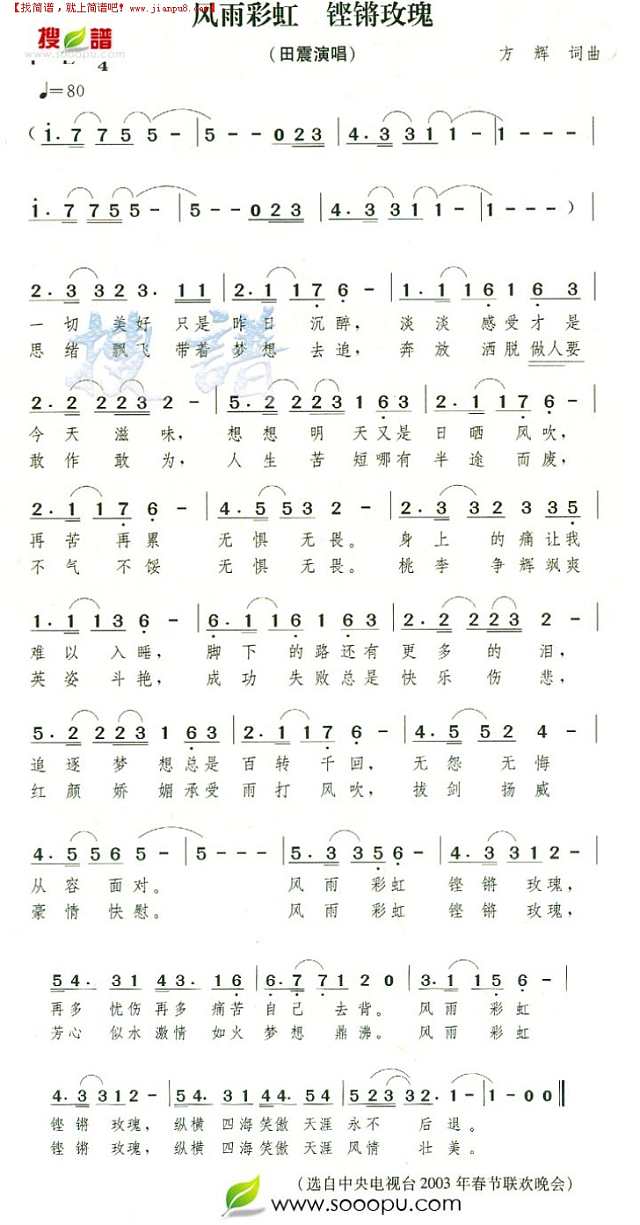 【找简谱，就上简谱吧】www.jianpu8.com
搜谱
www.sooopu.com
风雨彩虹 铿锵玫瑰
（田震演唱） 方辉 词曲
4
♩=80
（1. 7 7 5 5 5 - | 5 - - 0 2 3 | 4. 3 3 1 1 1 - | 1 - - - |
1. 7 7 5 5 5 - | 5 - - 0 2 3 | 4. 3 3 1 1 - | 1 - - - ） |
2. 3 3 2 3. 1 1 | 2. 1 1 7 6 - | 1. 1 1 6 1 6 6 3 |
一切 美好 只是 昨日 沉醉， 淡淡 感受才是
思绪 飘飞 带着 梦想 去追， 奔放 洒脱 做人要
2. 2 2 2 3 2 - | 5. 2 2 2 3 1 6 3 | 2. 1 1 7 6 - |
今天 滋味， 想想 明天又是 日晒 风吹，
敢作 敢为， 人生 苦短哪有 半途 而废，
2. 1 1 7 6 - | 4. 5 5 3 2 - | 2. 3 3 2 3 3 5 |
再苦 再累 无惧 无畏。 身上 的痛让我
不气 不馁 无惧 无畏。 桃李 争辉飒爽
1. 1 1 3 6 - | 6. 1 1 6 1 6 3 | 2. 2 2 2 3 2 - |
难以 入睡， 脚下 的路还有 更多 的泪，
英姿 斗艳， 成功 失败总是 快乐 伤悲，
5. 2 2 2 3 1 6 3 | 2. 1 1 7 6 - | 4. 5 5 2 4 - |
追逐 梦想总是 百转 千回， 无怨 无悔
红颜 娇媚承受 雨打 风吹， 拔剑 扬威
4. 5 5 6 5 - | 5 - - - | 5. 3 3 5 6 - | 4. 3 3 1 2 - |
从容 面对。 风雨 彩虹 铿锵 玫瑰，
豪情 快慰。 风雨 彩虹 铿锵 玫瑰，
5 4. 3 1 4 3. 1 6 | 6. 7 7 1 2 0 | 3. 1 1 5 6 - |
再多 忧伤 再多 痛苦 自己 去背。 风雨 彩虹
芳心 似水 激情 如火 梦想 鼎沸。 风雨 彩虹
4. 3 3 1 2 - | 5 4. 3 1 3 4. 3 1 | 5 2 3 3 2. 1 - | 1 - 0 0 ‖
铿锵 玫瑰， 纵横 四海笑傲 天涯 永不 后退。
铿锵 玫瑰， 纵横 四海笑傲 天涯 风情 壮美。
（选自中央电视台 2003 年春节联欢晚会）
www.sooopu.com